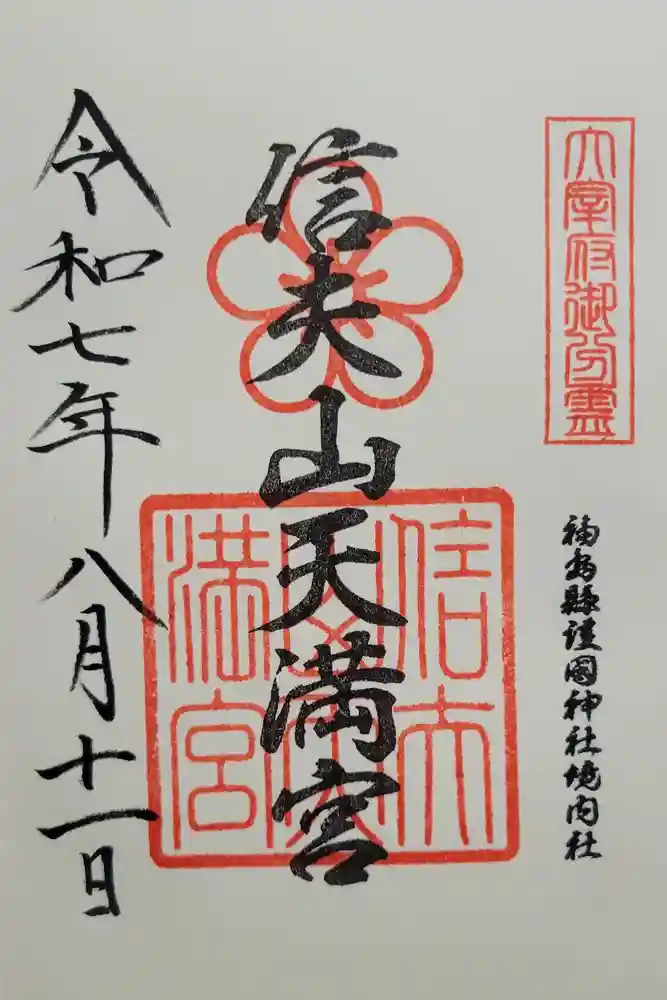 太宰府御分霊
福島縣護國神社境内社
信夫山天満宮
信夫山天満宮
令和七年八月十一日